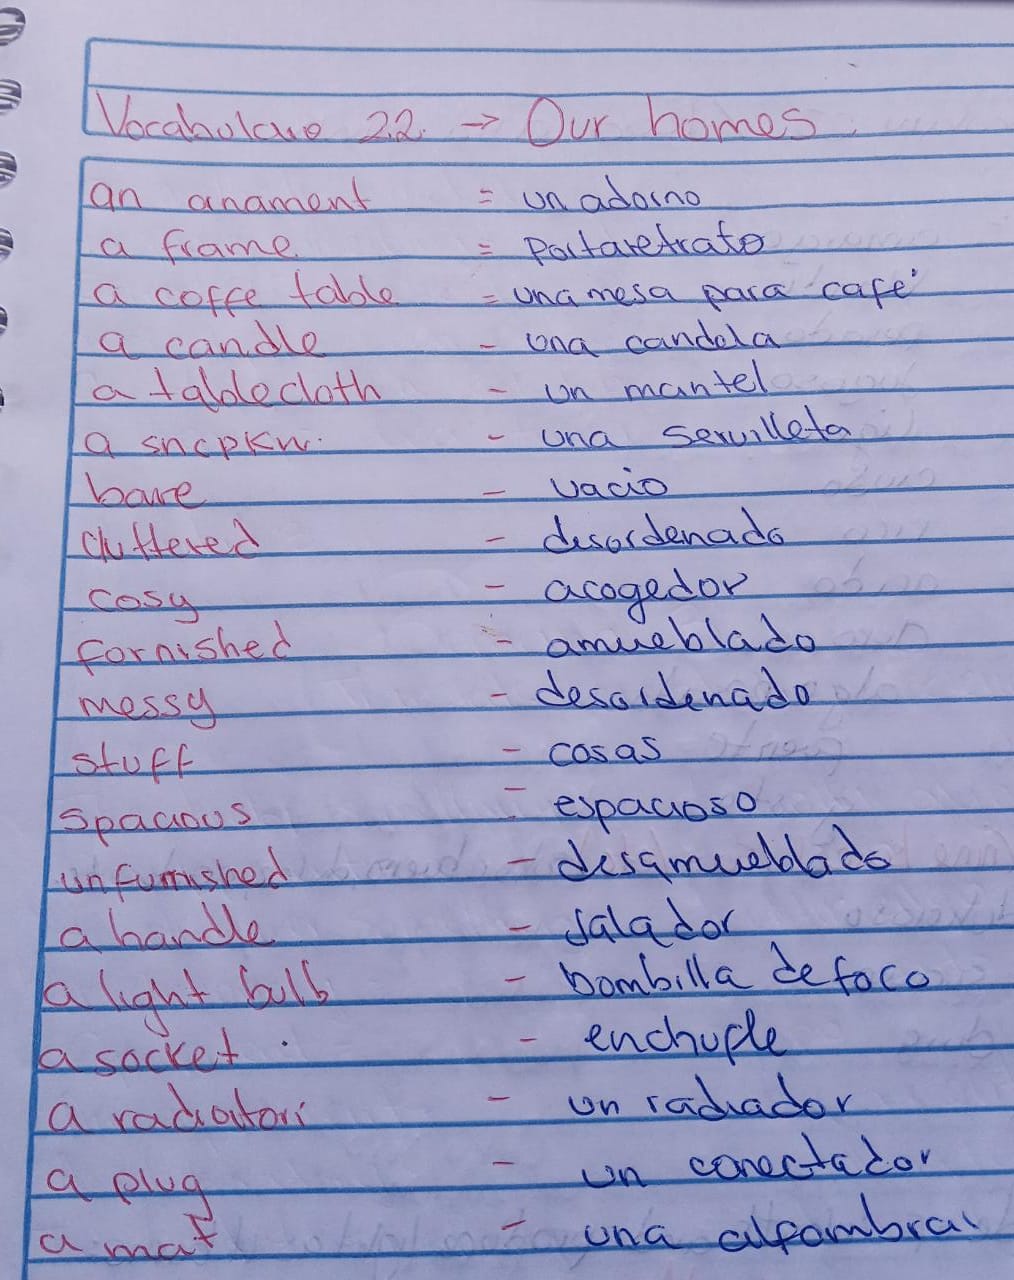 Vocabulario 2.2. → Our homes.
an anament = un adorno
a frame = Portaretrato
a coffe table = una mesa para café
a candle - una candela
a tablecloth - un mantel
a - una servilleta
bare - vacio
cluttered - desordenado
cosy - acogedor
fornished - amueblado
messy - desordenado
stuff - cosas
spacious - espacioso
unfurnished - desamueblado
a handle - Jalador
a light bulb - bombilla de foco
a socket - enchufle
a radiator - un radiador
a plug - un conectador
a mat - una alfombra